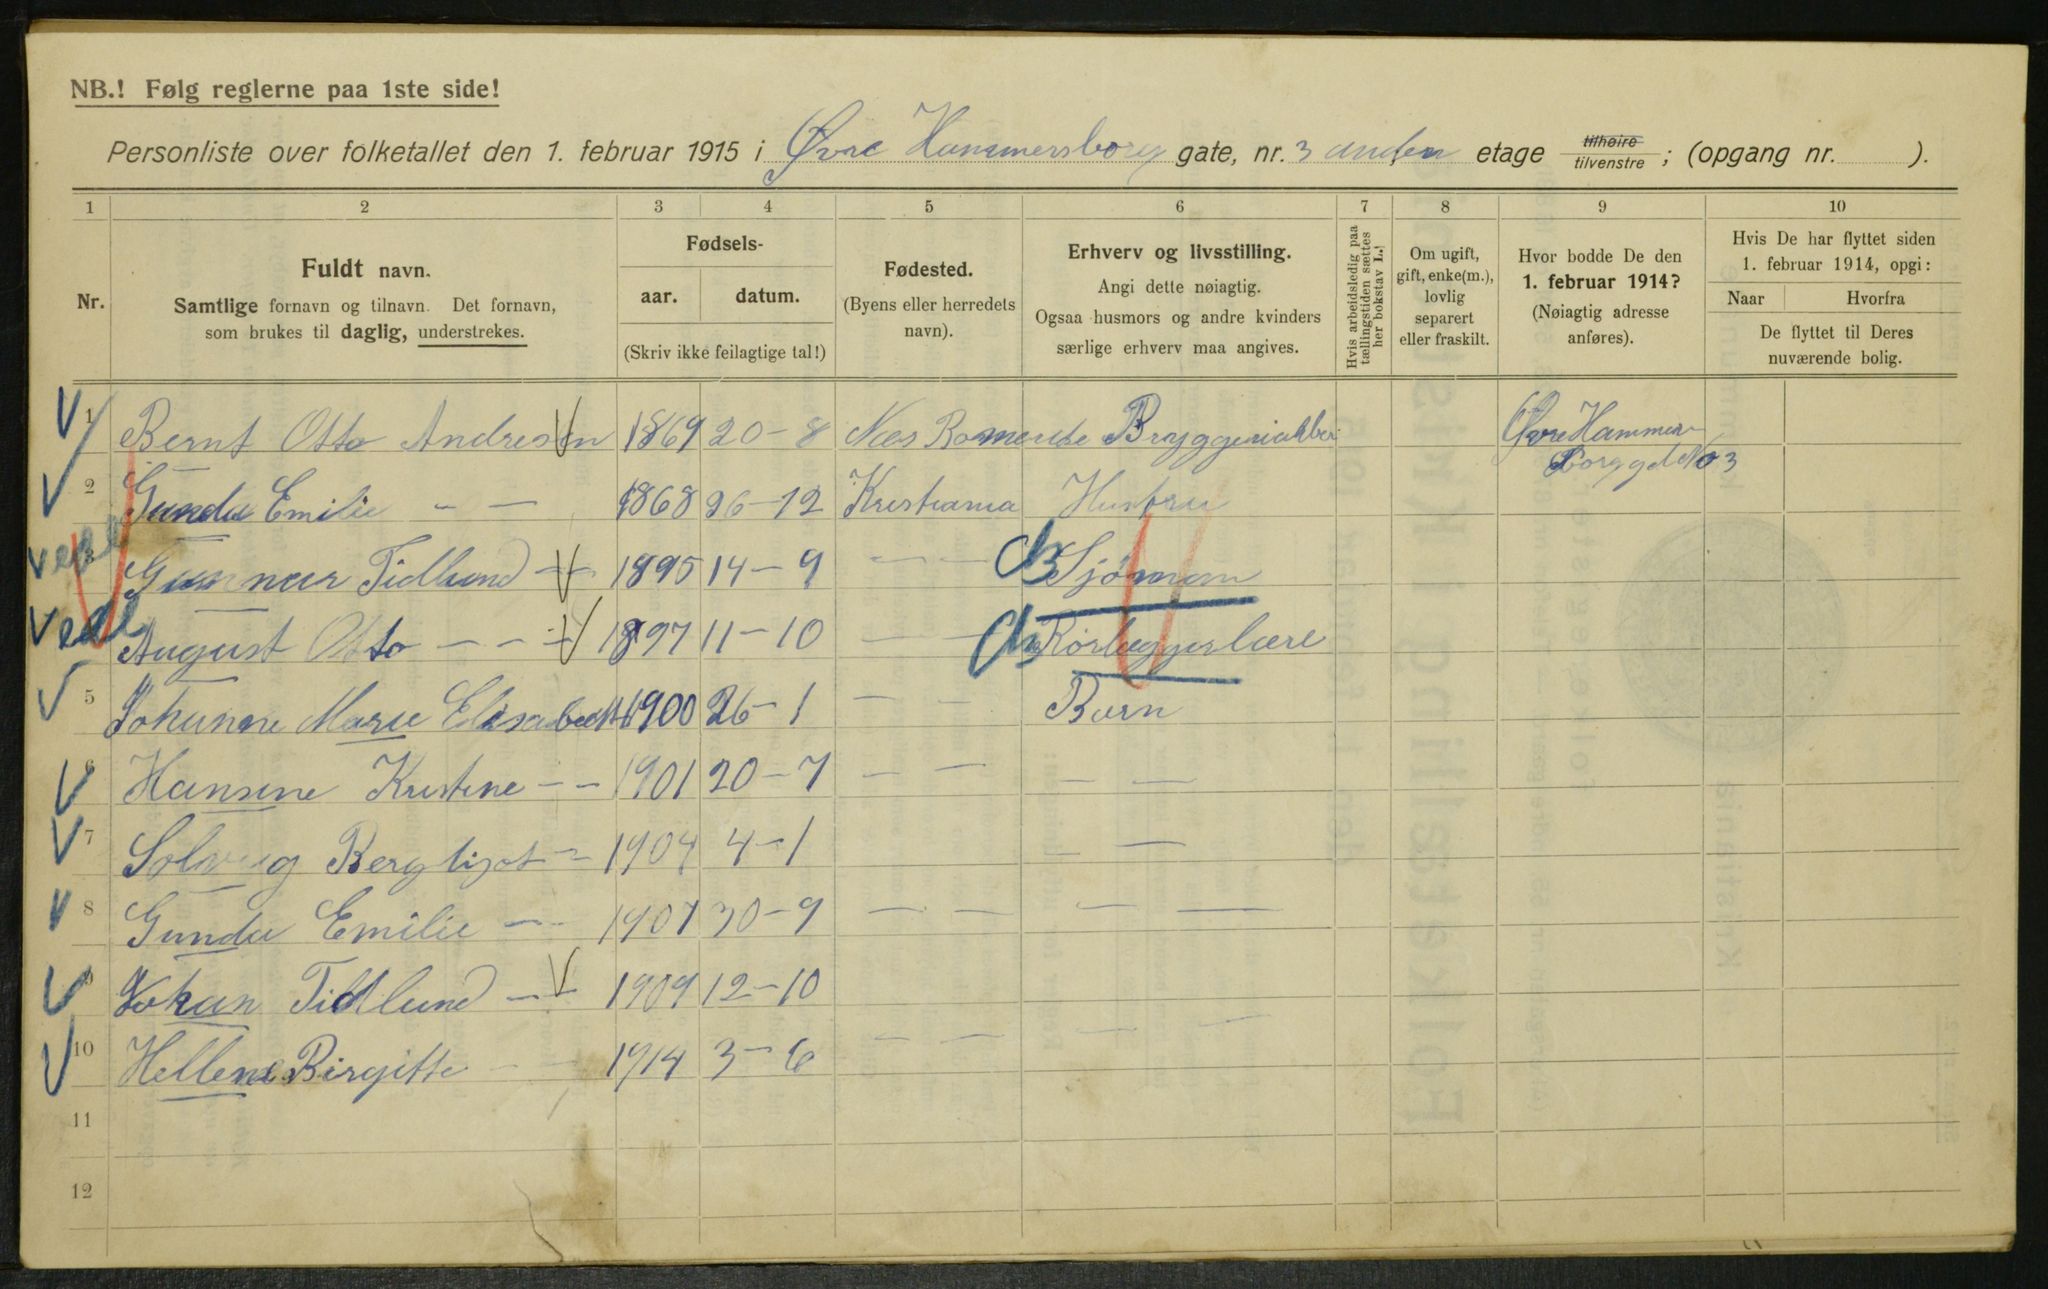 NB.! Følg reglerne paa 1ste side!
Personliste over folketallet den 1. februar 1915 i Øvre Hammersborg gate, nr. 3 anden etage tilhøire tilvenstre ; (opgang nr. ).
1 2 3 4 5 6 7 8 9 10
Nr.
Fuldt navn.
Samtlige fornavn og tilnavn. Det fornavn,
som brukes til daglig, understrekes.
Fødsels-
aar. datum.
(Skriv ikke feilagtige tal!)
Fødested.
(Byens eller herredets
navn).
Erhverv og livsstilling.
Angi dette nøiagtig.
Ogsaa husmors og andre kvinders
særlige erhverv maa angives.
Hvis arbeidsledig paa
tællingstiden sættes
her bokstav L.
Om ugift,
gift, enke(m.),
lovlig
separert
eller fraskilt.
Hvor bodde De den
1. februar 1914?
(Nøiagtig adresse
anføres).
Hvis De har flyttet siden
1. februar 1914, opgi:
Naar Hvorfra
De flyttet til Deres
nuværende bolig.
1 Bernt Otto Andresen 1869 20-8 Næs Øvre Hammer
2 Gunda Emilie - - 1868 26-12 Kristiania Hustru
3 Gunnar Tidlund - 1895 14-9 - - Sjömam
4 August Otto - - - 1897 11-10 - - Rörleggerlære
5 Johanne Marie Elisabeth 1900 26-1 - - Barn
6 Hansine Kristine - - 1901 20-7 - - - -
7 Solveig Bergliot - 1904 4-1 - -
8 Gunda Emilie - - 1907 30-9 - - - -
9 Johan Tidlund - - 1909 12-10
10 Hellene Birgitte - - 1914 3-6 - - - -
11
12